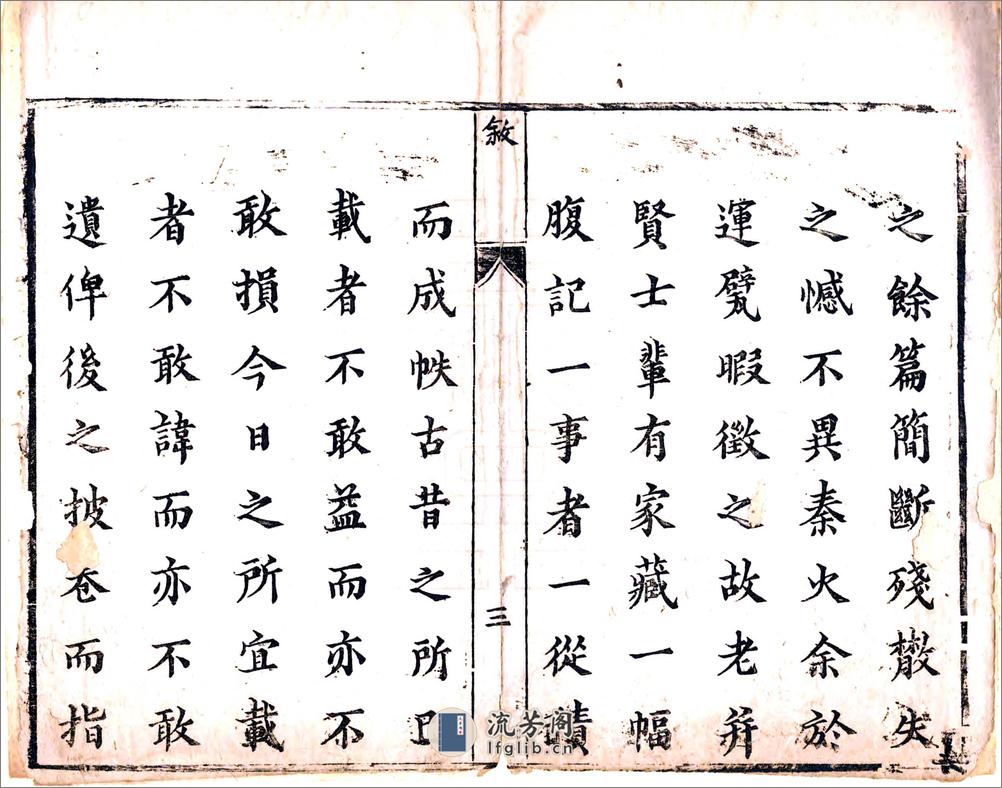 之餘篇簡斷殘散失
之憾不異秦火余於
運甓暇徵之故老并
賢士輩有家藏一幅
腹記一事者一從
敘
三
而成帙古昔之所
載者不敢益而亦不
敢損今日之所宜載
者不敢諱而亦不敢
遺俾後之披卷而指
流芳阁
lfglib.cn